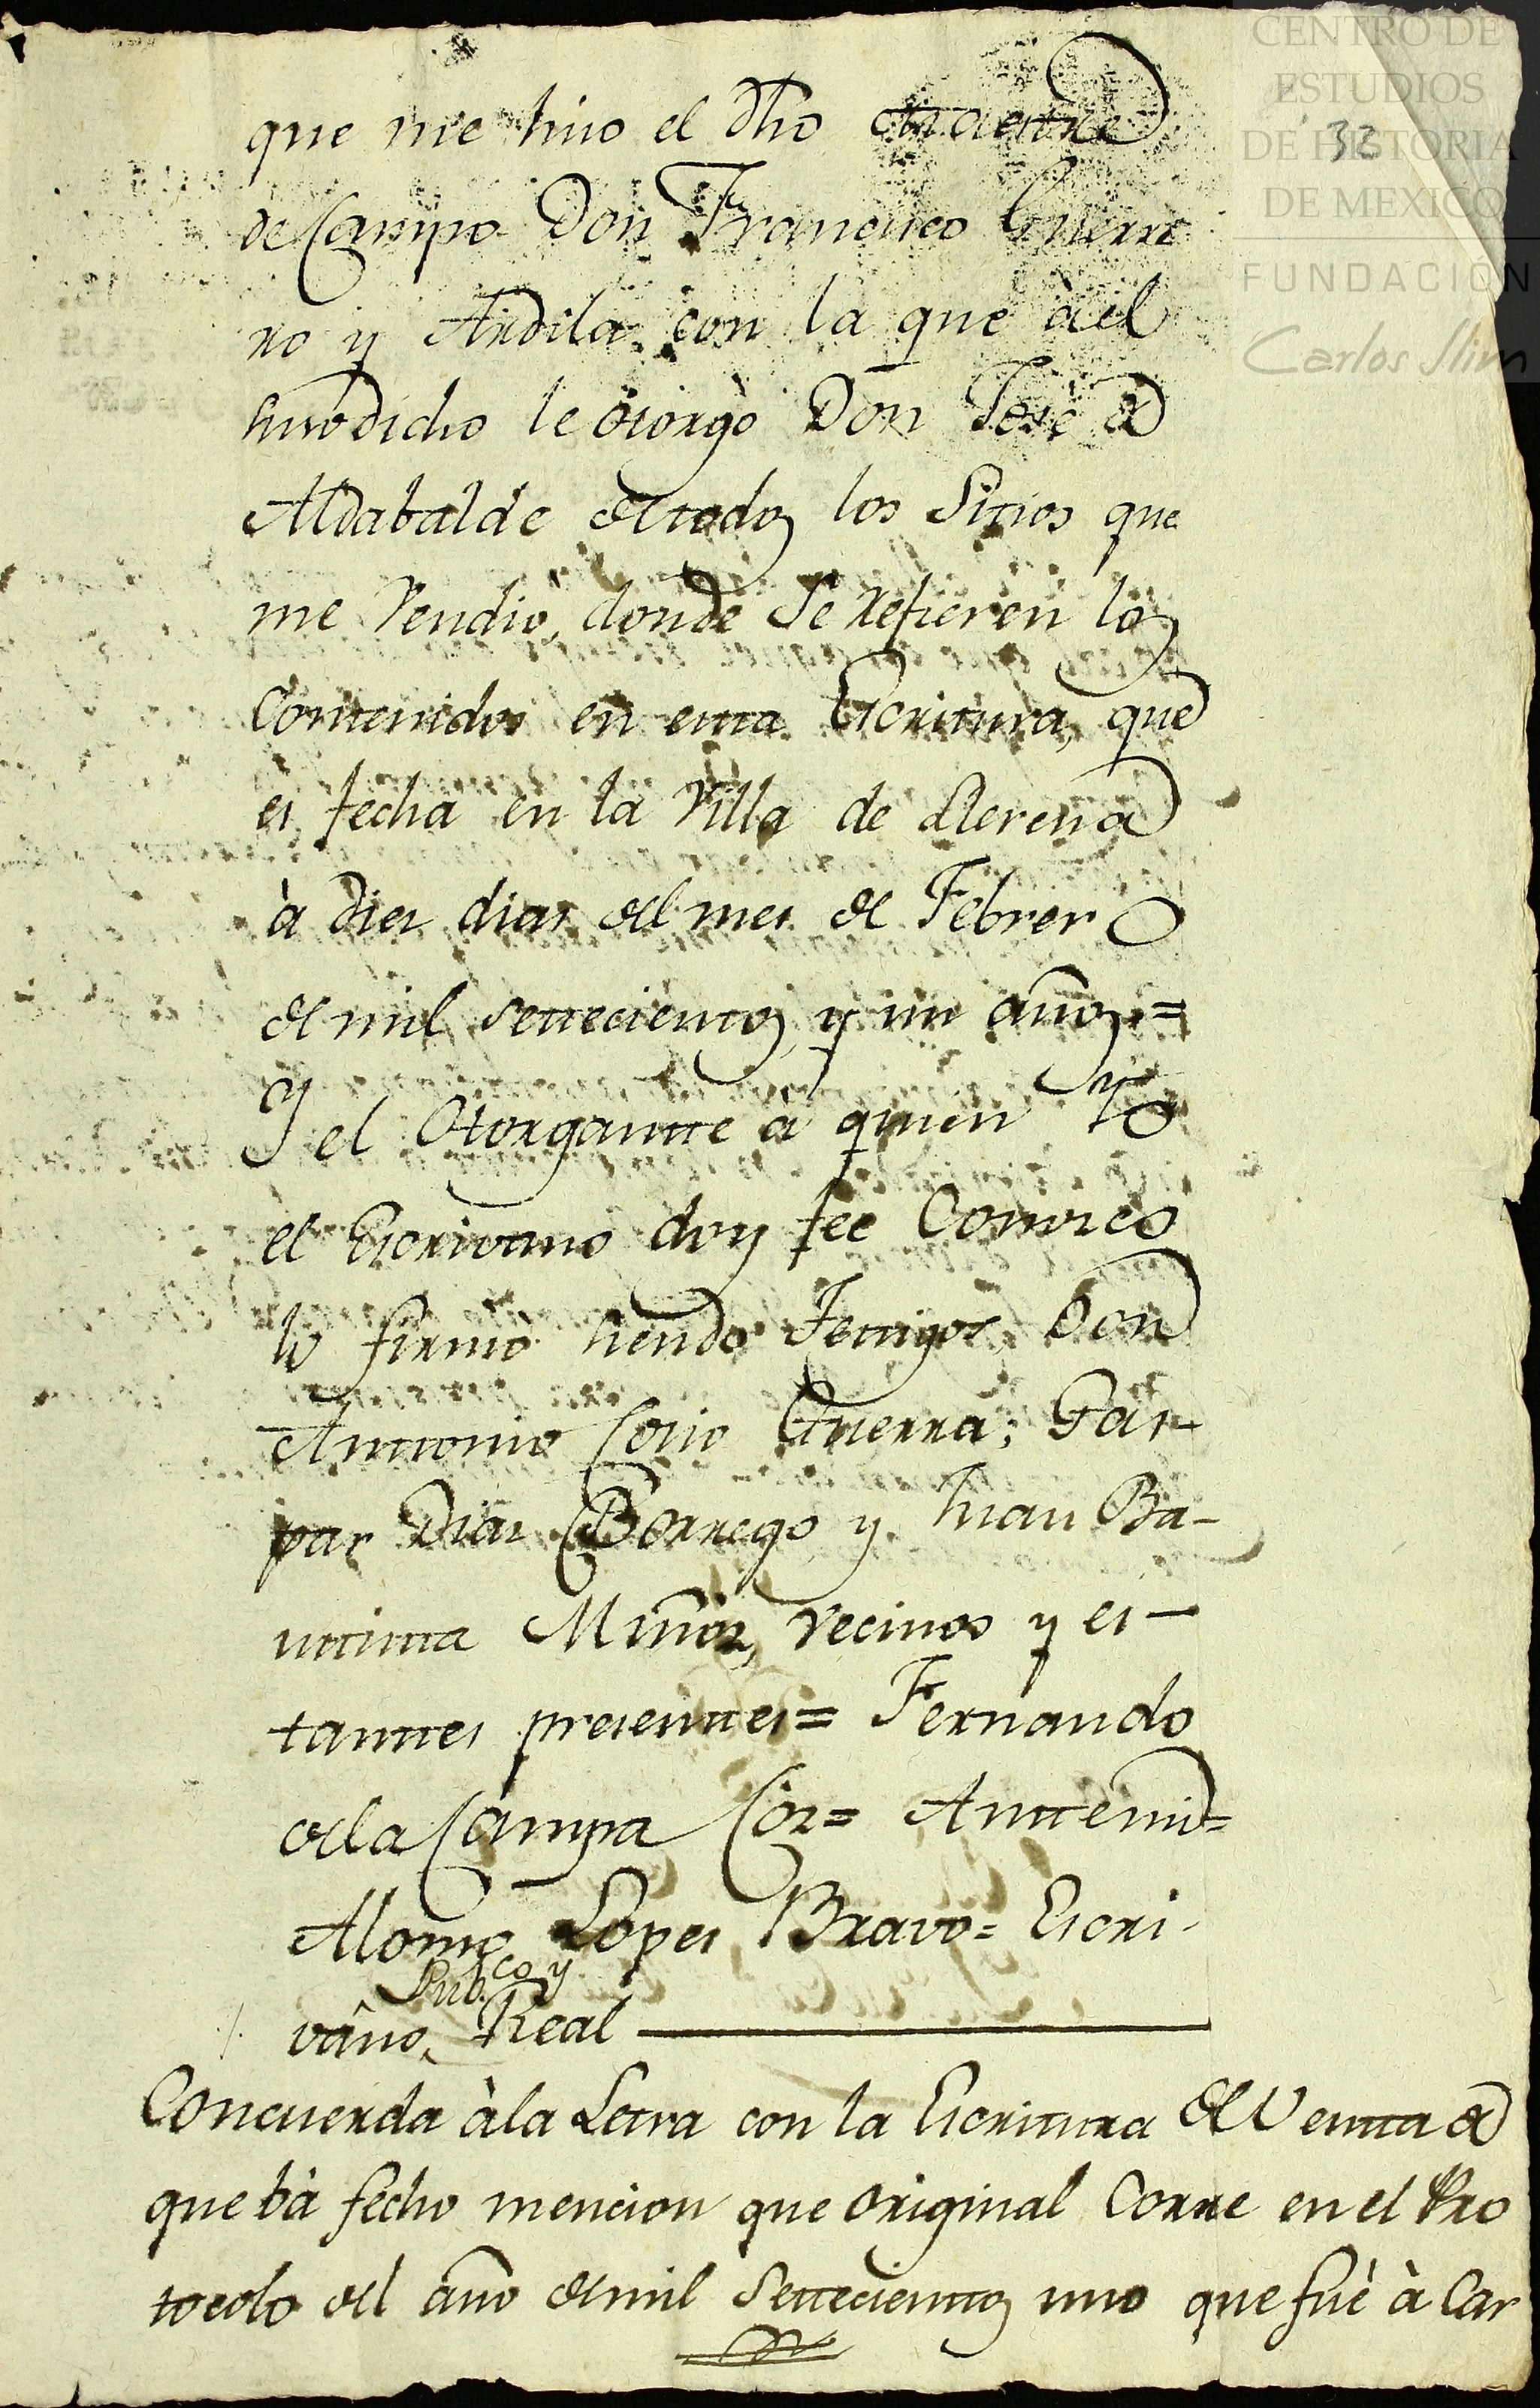 CENTRO DE
ESTUDIOS
DE HISTORIA
DE MEXICO
FUNDACIÓN
Carlos Slim
32
que me hiso el dho Maestre
de Campo Don Francisco Guerre
ro y Ardila con la que à el
susodicho le otorgò Don José de
Aldabalde de todos los Sitios que
me Vendio, donde Se refieren los
Contenidos en esta Escritura, que
es fecha en la Villa de Llerena
à dies dias del mes de Febrero
de mil settecientos, y un años =
Y el Otorgante à quien Yo
el Escrivano doy fee Conosco
lo firmò siendo Testigos Don
Anttonio Cosio Guerra; Gas-
par Dias Borrego y Juan Ba-
uttista Muños, vecinos y es-
tanttes presenttes = Fernando
de la Campa Cos = Antte mi =
Alonso Lopes Bravo = Escri-
Pub.co y
vâno, Real
Concuerda à la Letra con la Escritura de Ventta de
que bà fecho mencion que original Corre en el Pro
tocolo del año de mil Settecientos uno que fué à Car